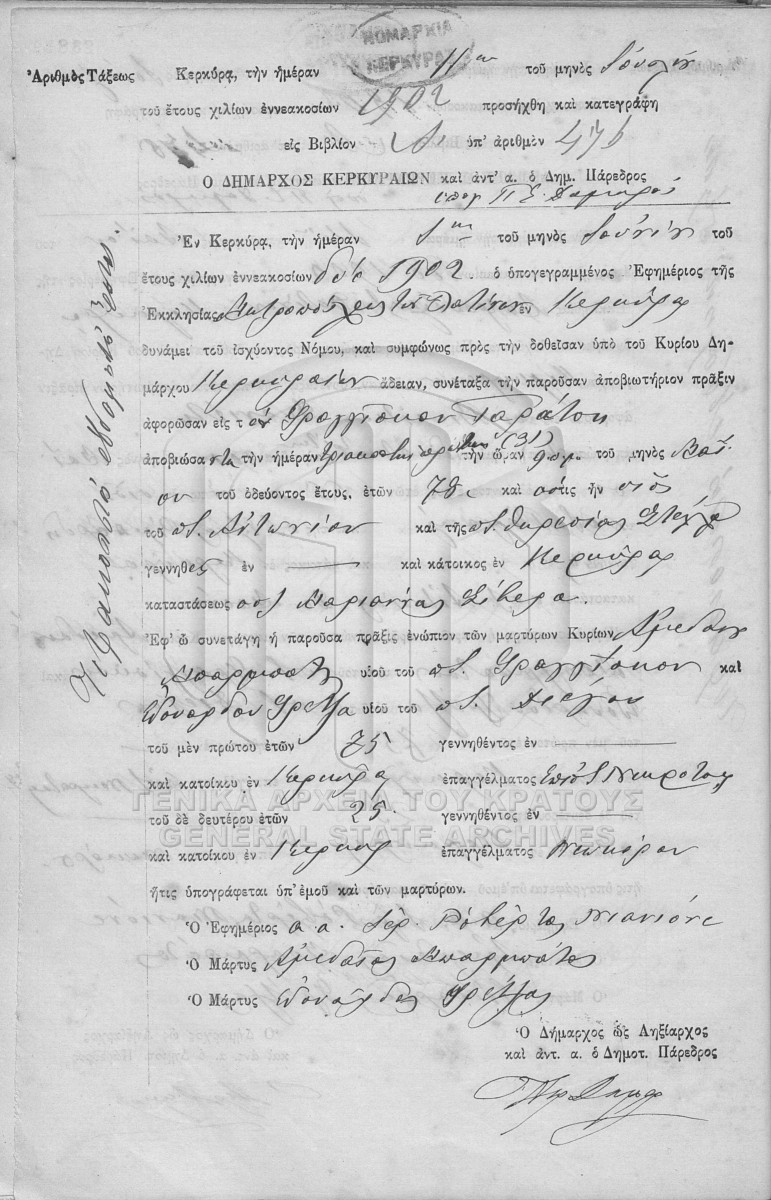 ΝΟΜΑΡΧΙΑ
ΚΕΡΚΥΡΑΣ
Ἀριθμὸς Τάξεως Κερκύρᾳ, τὴν ἡμέραν 11ην τοῦ μηνὸς Ἰουλίου
τοῦ ἔτους χιλίων ἐννεακοσίων 1902 προσήχθη καὶ κατεγράφη
εἰς Βιβλίον Α' ὑπ' ἀριθμὸν 476
Ὁ ΔΗΜΑΡΧΟΣ ΚΕΡΚΥΡΑΙΩΝ καὶ ἀντ' α. ὁ Δημ. Πάρεδρος
ὑπογ Π. Σ.
Ἐν Κερκύρᾳ, τὴν ἡμέραν 1ην τοῦ μηνὸς Ἰουνίου τοῦ
ἔτους χιλίων ἐννεακοσίων δύο 1902 ὁ ὑπογεγραμμένος Ἐφημέριος τῆς
Ἐκκλησίας Μητροπόλεως τῶν Λατίνων ἐν Κερκύρᾳ
δυνάμει τοῦ ἰσχύοντος Νόμου, καὶ συμφώνως πρὸς τὴν δοθεῖσαν ὑπὸ τοῦ Κυρίου Δη-
μάρχου Κερκυραίων ἄδειαν, συνέταξα τὴν παροῦσαν ἀποβιωτήριον πρᾶξιν
ἀφορῶσαν εἰς τὸν Φραγγῖσκον
ἀποβιώσαντα τὴν ἡμέραν τριακοστην πρώτην (31) τὴν ὥραν 9 π.μ. τοῦ μηνὸς Μαΐ
ου τοῦ ὁδεύοντος ἔτους, ἐτῶν 78 καὶ ὅστις ἦν υἱὸς
τοῦ ποτ. Ἀντωνίου καὶ τῆς ποτ. Θηρεσίας
γεννηθεὶς ἐν — καὶ κάτοικος ἐν Κερκύρᾳ
καταστάσεως συζ Μαριάννας
Ἐφ' ᾧ συνετάγη ἡ παροῦσα πρᾶξις ἐνώπιον τῶν μαρτύρων Κυρίων Ἀμεδαίου
Μπαρμπάτη υἱοῦ τοῦ ποτ. Φραγγίσκου καὶ
Ἐδουάρδου Φρέντζα υἱοῦ τοῦ ποτ. Διέγου
τοῦ μὲν πρώτου ἐτῶν 75 γεννηθέντος ἐν —
καὶ κατοίκου ἐν Κερκύρᾳ ἐπαγγέλματος
ΓΕΝΙΚΑ ΑΡΧΕΙΑ ΤΟΥ ΚΡΑΤΟΥΣ
τοῦ δὲ δευτέρου ἐτῶν 25 γεννηθέντος ἐν —
GENERAL STATE ARCHIVES
καὶ κατοίκου ἐν Κερκύρᾳ ἐπαγγέλματος Νεωκόρου
ἥτις ὑπογράφεται ὑπ' ἐμοῦ καὶ τῶν μαρτύρων.
Ὁ Ἐφημέριος α. α. Ἱερ. Ροβέρτος
Ὁ Μάρτυς Ἀμεδαῖος Μπαρμπάτης
Ὁ Μάρτυς Ἐδουάρδος Φρέντζας
Ὁ Δήμαρχος ὡς Ληξίαρχος
καὶ ἀντ. α. ὁ Δημοτ. Πάρεδρος
Τετρακόσια ἑβδομήκοντα ἕξ.